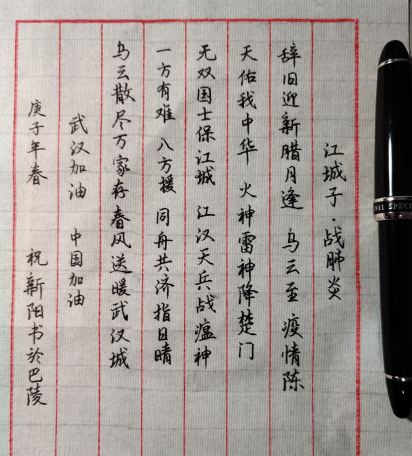 江城子·战肺炎
辞旧迎新腊月逢 乌云至 疫情陈
天佑我中华 火神雷神降楚门
无双国士保江城 江汉天兵战瘟神
一方有难 八方援 同舟共济指日晴
乌云散尽万家存春风送暖武汉城
武汉加油 中国加油
庚子年春 祝新阳书於巴陵